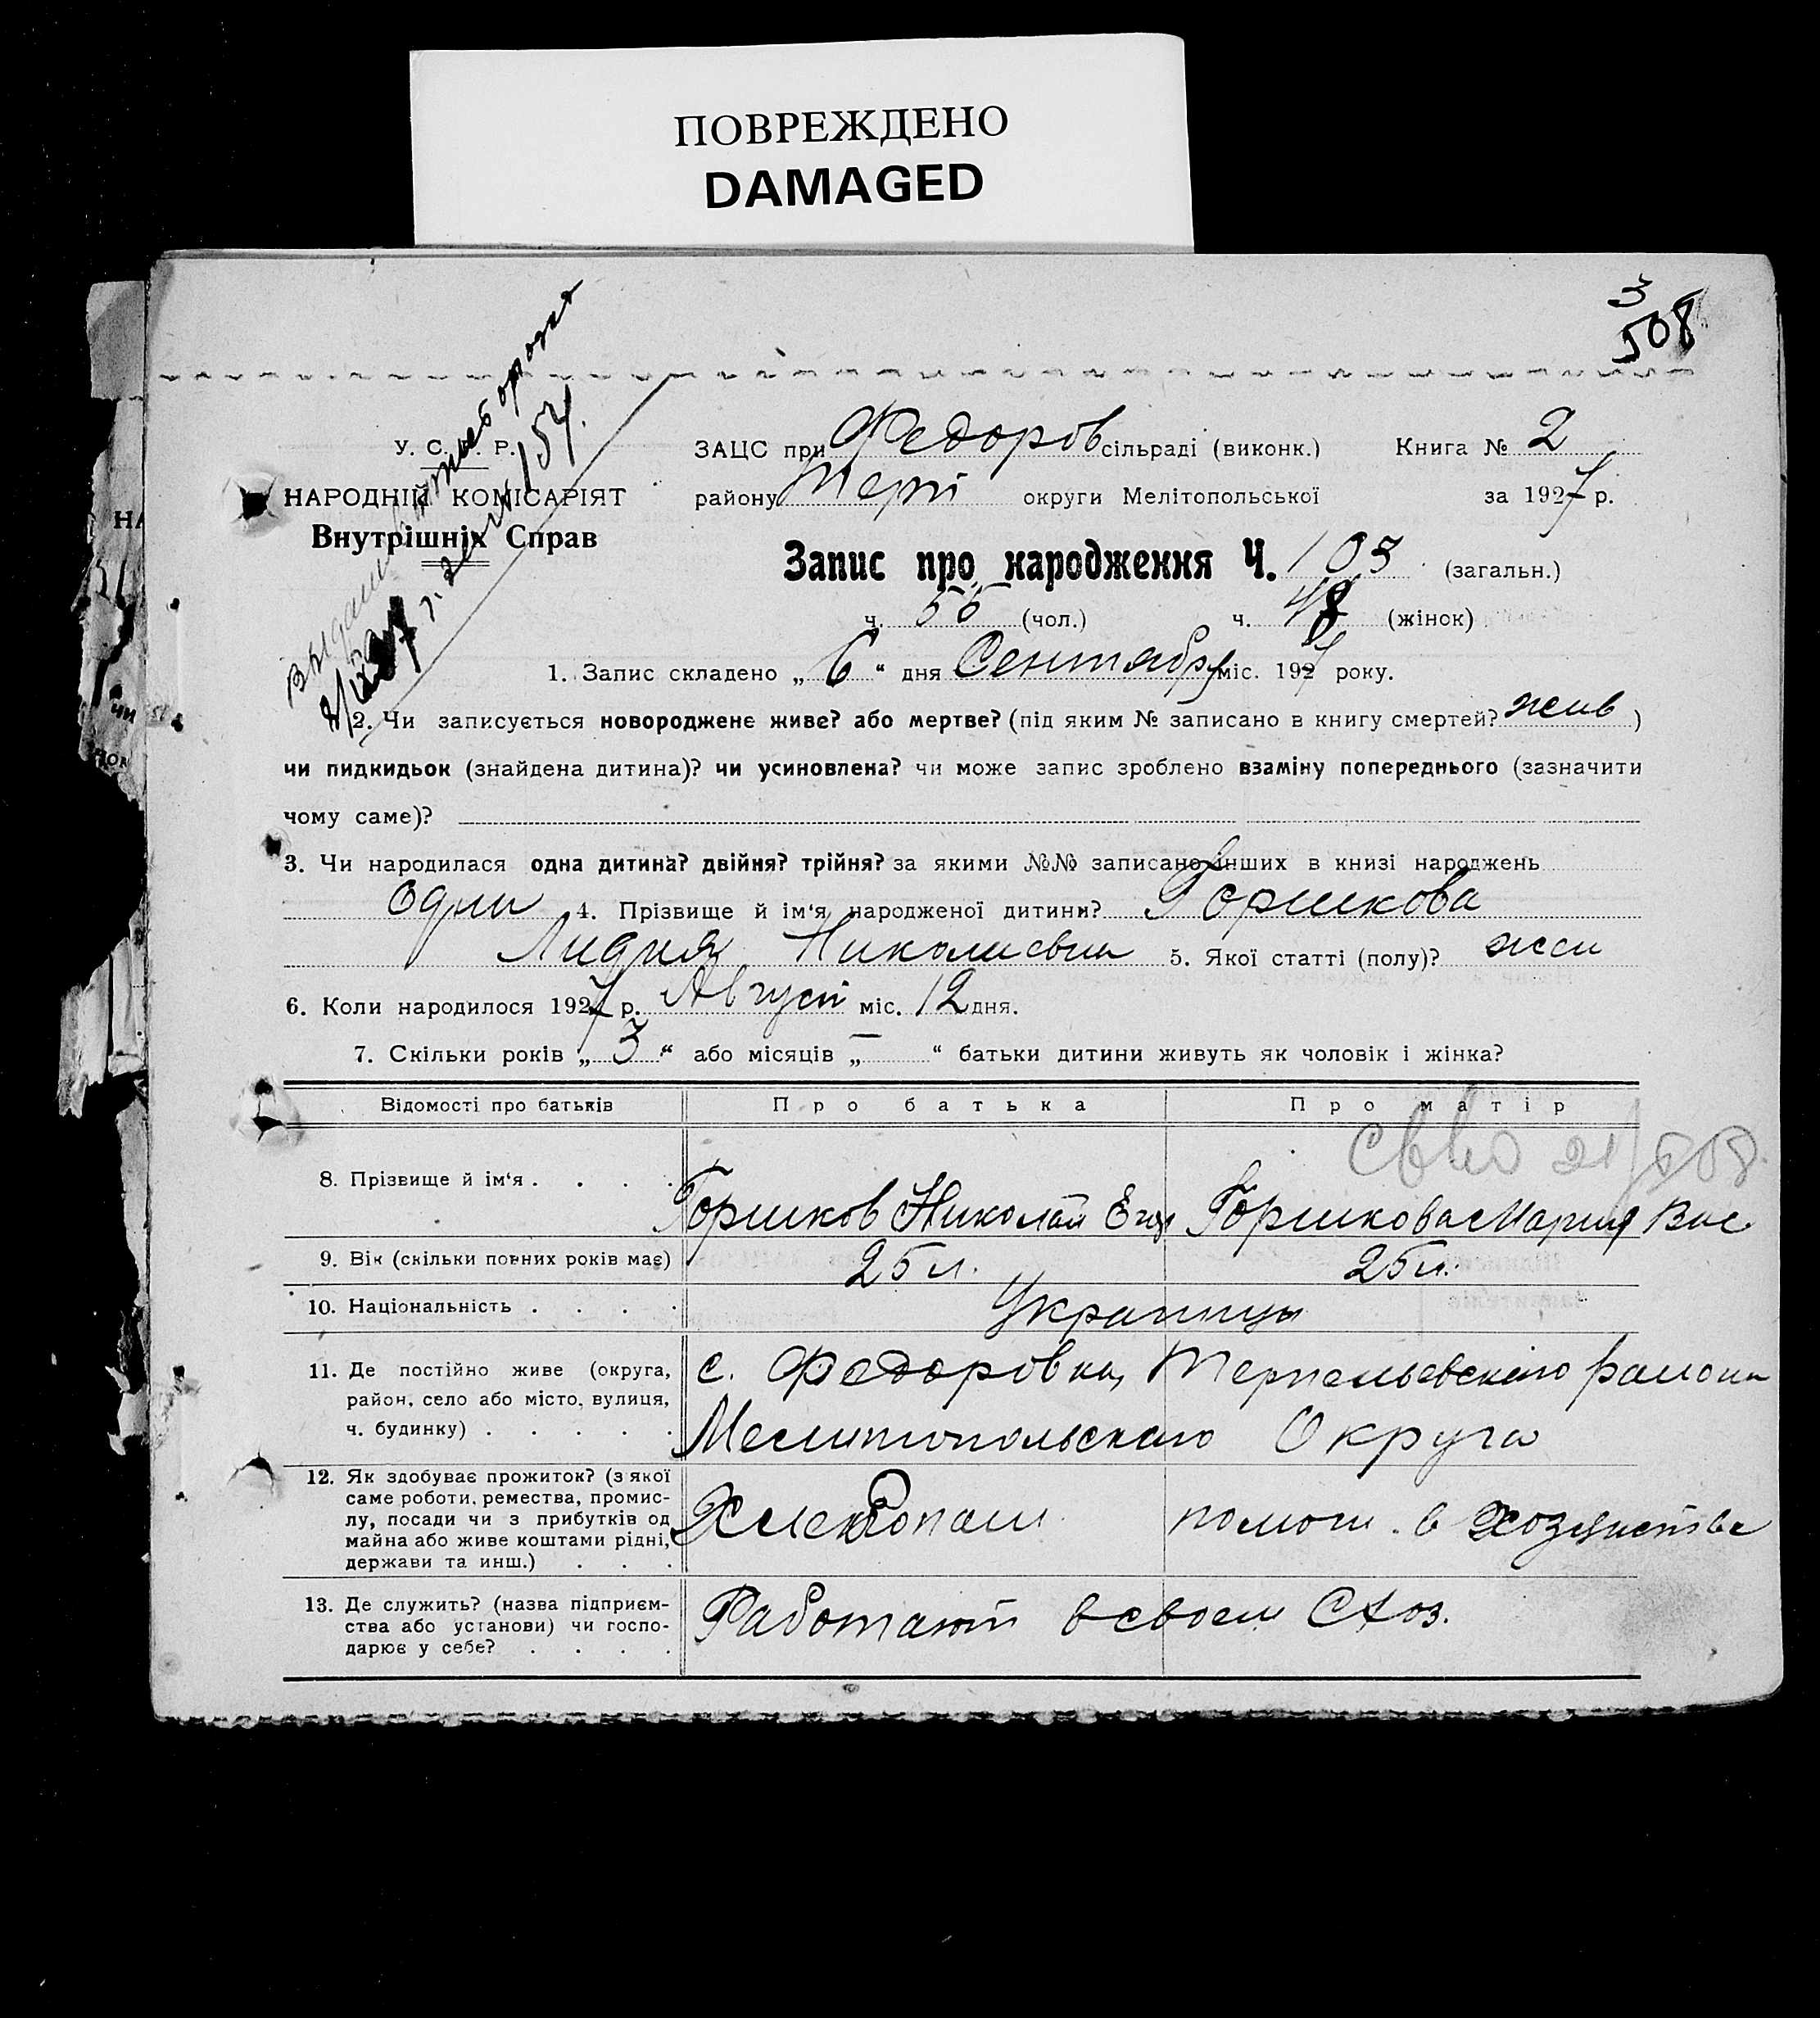 ПОВРЕЖДЕНО
DAMAGED
3
508
У. С. Р. Р.
НАРОДНІЙ КОМІСАРІЯТ
Внутрішніх Справ
ЗАЦС при Федоров сільраді (виконк.) Книга № 2
району Терп округи Мелітопольської за 1927 р.
Запис про народження Ч. 103 (загальн.)
ч. 55 (чол.) ч. 48 (жінок)
1. Запис складено „ 6 “ дня Сентябр міс. 1927 року.
2. Чи записується новороджене живе? або мертве? (під яким № записано в книгу смертей? жив )
чи пидкидьок (знайдена дитина)? чи усиновлена? чи може запис зроблено взаміну попереднього (зазначити
чому саме)?
3. Чи народилася одна дитина? двійня? трійня? за якими №№ записано інших в книзі народжень
один 4. Прізвище й ім‘я народженої дитини? Горшкова
Лидия Николаевна 5. Якої статті (полу)? жен
6. Коли народилося 1927 р. Август міс. 12 дня.
7. Скільки років „ 3 “ або місяців „ — “ батьки дитини живуть як чоловік і жінка?
Відомості про батьків Про батька Про матір
8. Прізвище й ім‘я . . . . Горшков Николай Горшкова Мария Вас
9. Вік (скільки повних років має) 25 л. 25 л.
10. Національність . . . . Украинцы
11. Де постійно живе (округа,
район, село або місто, вулиця,
ч. будинку) . . . . .
с. Федоровка, Терпеньевского района
Мелитопольского Округа
12. Як здобуває прожиток? (з якої
саме роботи, ремества, промис-
лу, посади чи з прибутків од
майна або живе коштами рідні,
держави та инш.) . . .
Хлебопаш помощ. в хозяйстве
13. Де служить? (назва підприєм-
ства або установи) чи госпо-
дарює у себе? . . . .
Работают в своем С/хоз.